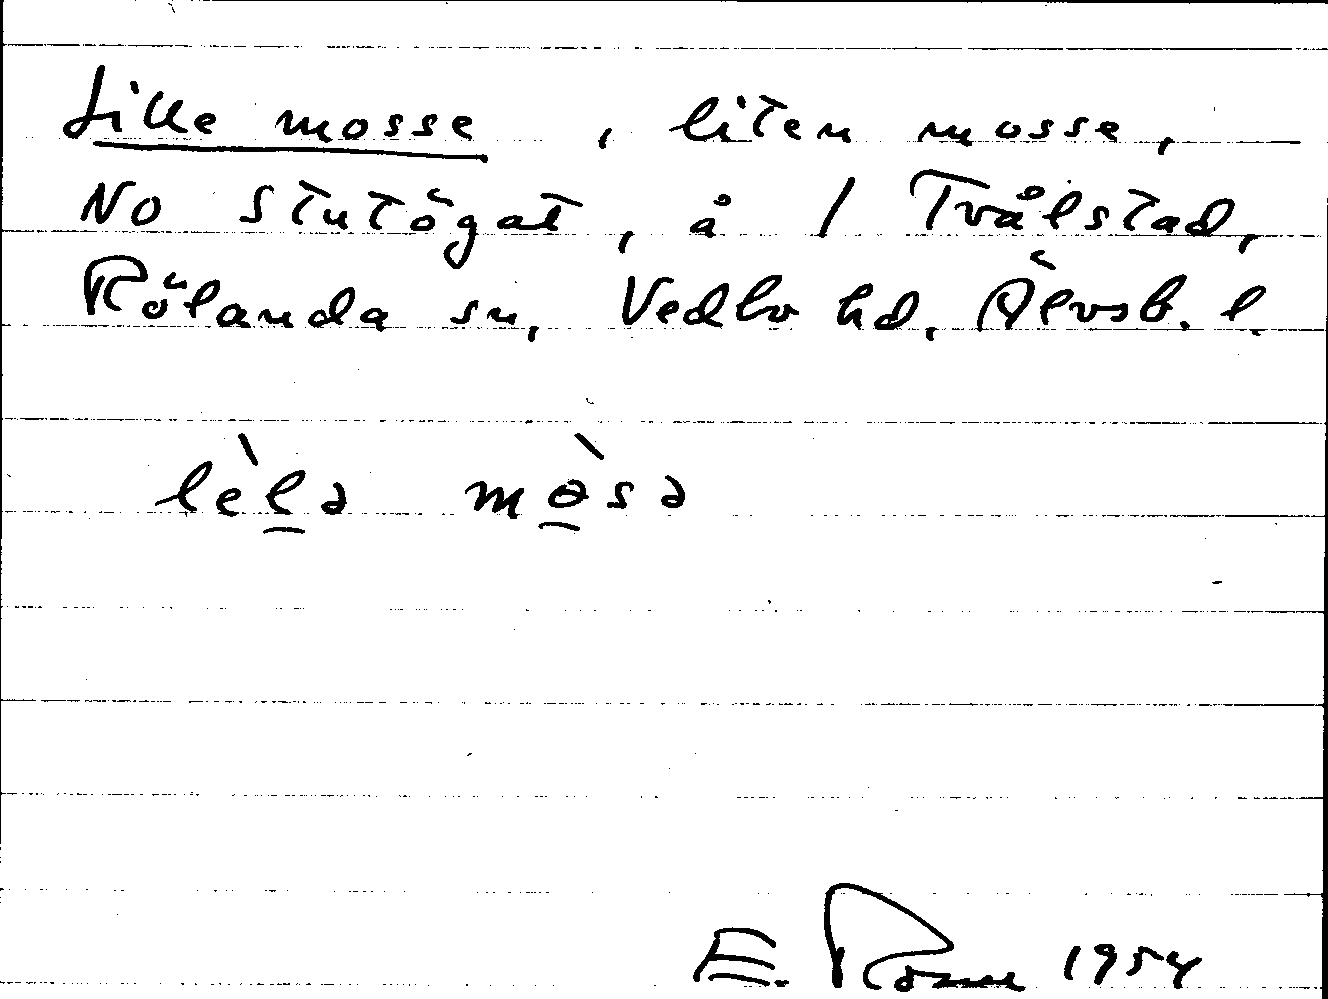 Lille mosse, liten mosse,
NO Stutögat, å 1 Tvålstad,
Rölanda sn, Vedbo hd, Älvsb. l.
lèlə mɵ̀sə
E. 1954